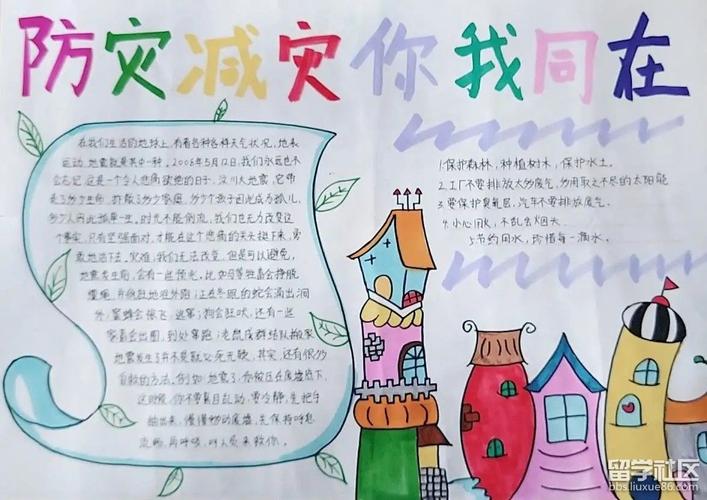 防灾减灾你我同在
在我们生活的地球上,有着各种各样天气状况,地表
运动,地震就是其中一种。2008年5月12日,我们永远也不
会忘记,这是一个令人悲痛欲绝的日子,汶川大地震,它带
走了多少生命,拆散了多少家庭,多少个孩子因此成为孤儿,
多少人因此孤单一生,时光不能倒流,我们也无力改变这
个事实,只有坚强面对,才能在这个悲痛的关头挺下来,勇
敢地活下去,灾难,我们无法改变,但是可以避免。
地震发生前,会有一些预兆,比如等牲畜会挣脱
缰绳,并疯狂地往外跑;正在冬眠的蛇会出洞
外;蜜蜂会惊飞,逃窜;狗会狂吠,还有一些
家畜会出圈,到处跑,老鼠成群结队搬家
地震发生了并不是就必死无疑,其实,还有很多
自救的方法,例如:地震了,你被压在废墟底下,
这时候,你不要盲目乱动,要冷静,先把手
抽出来,慢慢挪动废墟,先保持呼吸
流畅,再呼喊,叫人员来救你。
1.保护森林,种植树木,保护水土。
2.工厂不要排放太多废气,多用取之不尽的太阳能
3.要保护臭氧层,汽车不要排放废气。
4.小心用火,不乱丢烟头。
5.节约用水,珍惜每一滴水。
留学社区
bbs.liuxue86.com